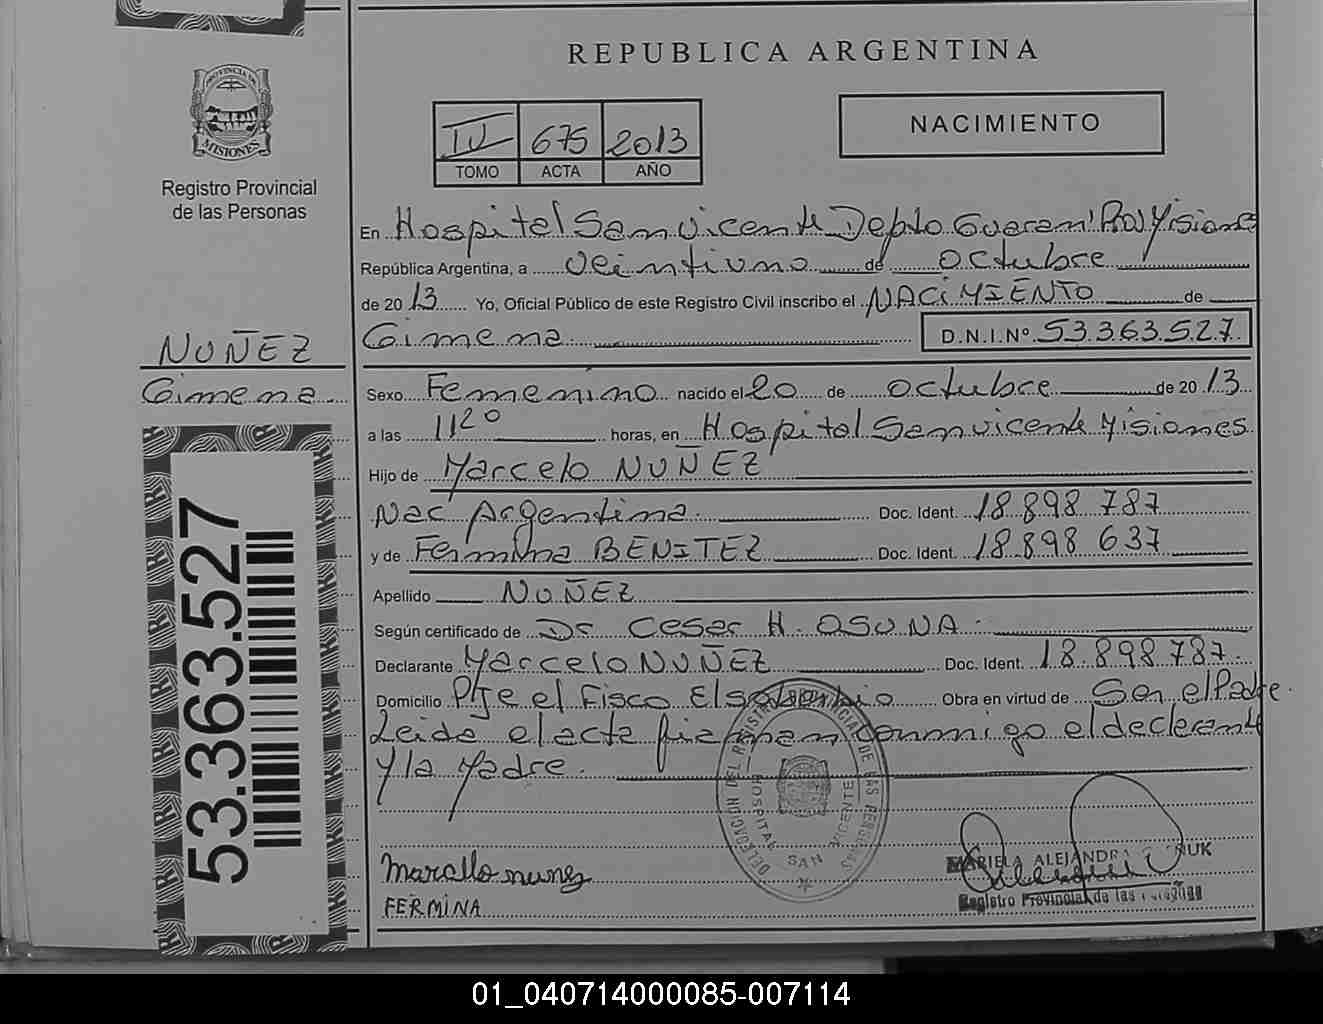 REPUBLICA ARGENTINA
PROVINCIA DE
MISIONES
Registro Provincial
de las Personas
IV 675 2013
TOMO ACTA AÑO
NACIMIENTO
En Hospital San vicente Depto Guarani Prov Misiones
República Argentina, a veintiuno de octubre
de 2013 Yo, Oficial Público de este Registro Civil inscribo el NACIMIENTO de
Gimena D.N.I.Nº 53.363.527
NUÑEZ
Gimena
Sexo Femenino nacido el 20 de octubre de 2013
a las 11 20 horas, en Hospital San vicente Misiones
Hijo de Marcelo NUÑEZ
Nac Argentina Doc. Ident. 18 898 787
y de Fermina BENITEZ Doc. Ident. 18.898 637
Apellido NUÑEZ
Según certificado de Dr Cesar H. OSUNA
Declarante Marcelo NUÑEZ Doc. Ident. 18.898.787
Domicilio Pje el Fisco El soberbio Obra en virtud de Ser el Padre.
Leida el acta firman conmigo el declarante
y la Madre.
53.363.527
DELEGACION DEL REGISTRO PROVINCIAL DE LAS PERSONAS
HOSPITAL SAN VICENTE
Marcelo nunez
FERMINA
MARIELA ALEJANDRA
Registro Provincial de las Personas
01_040714000085-007114